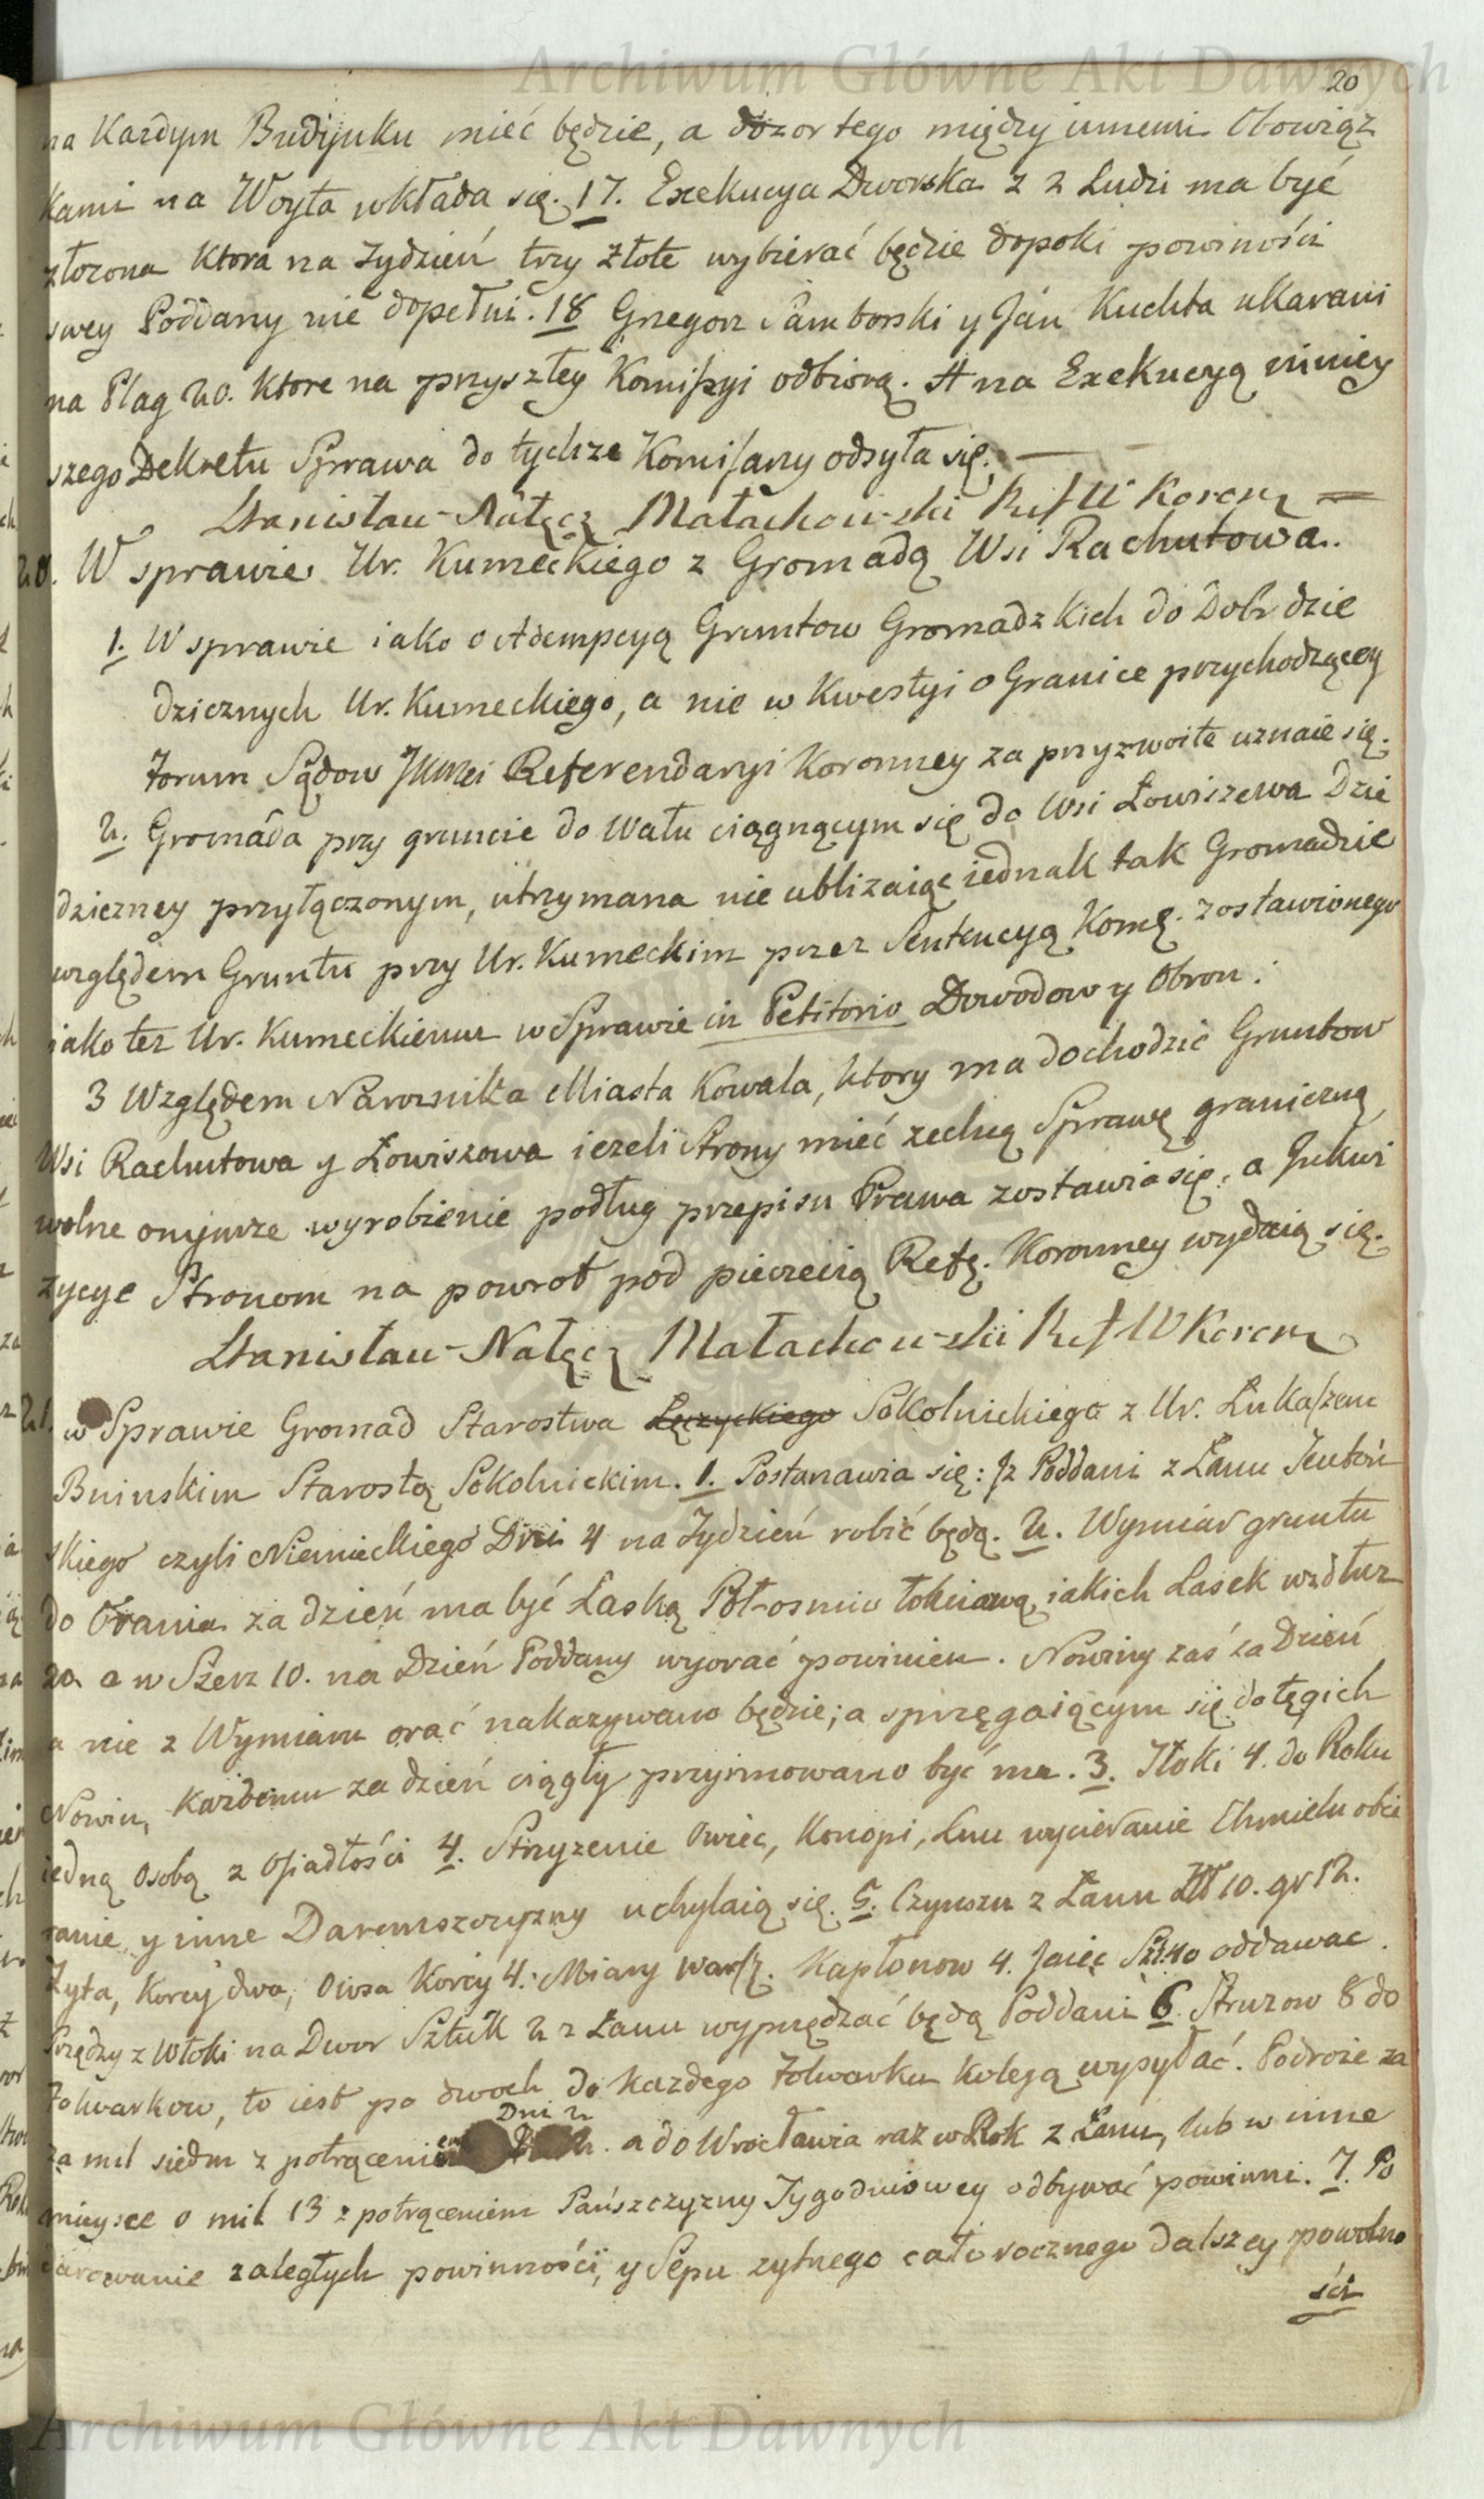 Archiwum Główne Akt Dawnych
20
na Każdym Budynku mieć będzie, a dozor tego między innemi Obowiąz
kami na Woyta wkłada się. 17. Exekucya Dworska z 2 Ludzi ma być
złozona Ktora na Tydzień trzy złote wybierać będzie dopoki powinności
swey Poddany nie dopełni. 18 Grzegorz Samborski y Jan Kuchta ukarani
na Plag 20. Ktore na przyszłey Komissyi odbiorą. A na Exekucyą niniey
szego Dekretu Sprawa do tychże Komissarzy odsyła się.
Stanisław Nałęcz Małachowski Ref W Koron
20. W sprawie Ur. Kumeckiego z Gromadą Wsi Rachutowa.
1. W sprawie iako o Ademcyą Gruntow Gromadzkich do Dobr dzie
dzicznych Ur. Kumeckiego, a nie w Kwestyi o Granice przychodzącey
Forum Sądow Referendaryi Koronney za przyzwoite uznaie się.
2. Gromada przy gruncie do Wału ciągnącym się do Wsi Łowiszewa Dzie
dziczney przyłączonym, utrzymana nie ubliżaiąc iednak tak Gromadzie
względem Gruntu przy Ur. Kumeckim przez Sentencyą Kom. zostawionego
iako tez Ur. Kumeckiemu w Sprawie in Petitorio Dowodow y Obron.
3 Względem Narożnika Miasta Kowala, ktory ma dochodzić Gruntow
Wsi Rachutowa y Łowiszowa ieżeli Strony mieć zechcą Sprawę graniczną
wolne oneyże wyrobienie podług przepisu Prawa zostawia się, a Inkwi
zycye Stronom na powrot pod pieczęcią Refe. Koronney wydaią się.
Stanisław Nałęcz Małachowski Ref W Koron
21. w Sprawie Gromad Starostwa Łęczyckiego Sokolnickiego z Ur. Łukaszem
Bninskim Starostą Sokolnickim. 1. Postanawia się: Iż Poddani z Łanu Teutoń
skiego czyli Niemieckiego Dni 4 na Tydzień robić będą. 2. Wymiar gruntu
do Orania za dzień ma być Laską Poł-osmu łokciową, iakich Lasek wzdłuż
20 a w Szerz 10. na Dzień Poddany wyorać powinien. Nowiny zaś za Dzień
a nie z Wymiaru orać nakazywano będzie; a sprzęgaiącym się do tęgich
Nowin, Każdemu za dzień ciągły przyimowano być ma. 3. Tłoki 4. do Roku
iedną osobą z Osiadłości 4. Strzyżenie Owiec, Konopi, Lnu wycieranie Chmielu obie
ranie y inne Daremszczyzny uchylaią się. 5. Czynszu z Łanu Zł 10. gr 12.
Żyta, Korcy dwa, Owsa Korcy 4. Miary Warsz. Kapłonow 4. Jaiec Szt. 40 oddawac.
Przędzy z Włoki na Dwor Sztuk 2 z Łanu wyprzędzać będą Poddani 6. Struzow 8 do
Folwarkow, to iest po dwoch do każdego Folwarku koleją wysyłać. Podroże za
za mil siedm z potrąceniem Dni 2 a do Wrocławia raz w Rok z Łanu, lub w inne
mieysce o mil 13 z potrąceniem Pańszczyzny Tygodniowey odbywać powinni. 7. Po
darowanie zaległych powinności, y Sepu żytnego całorocznego dalszey powolno
ści
Archiwum Główne Akt Dawnych